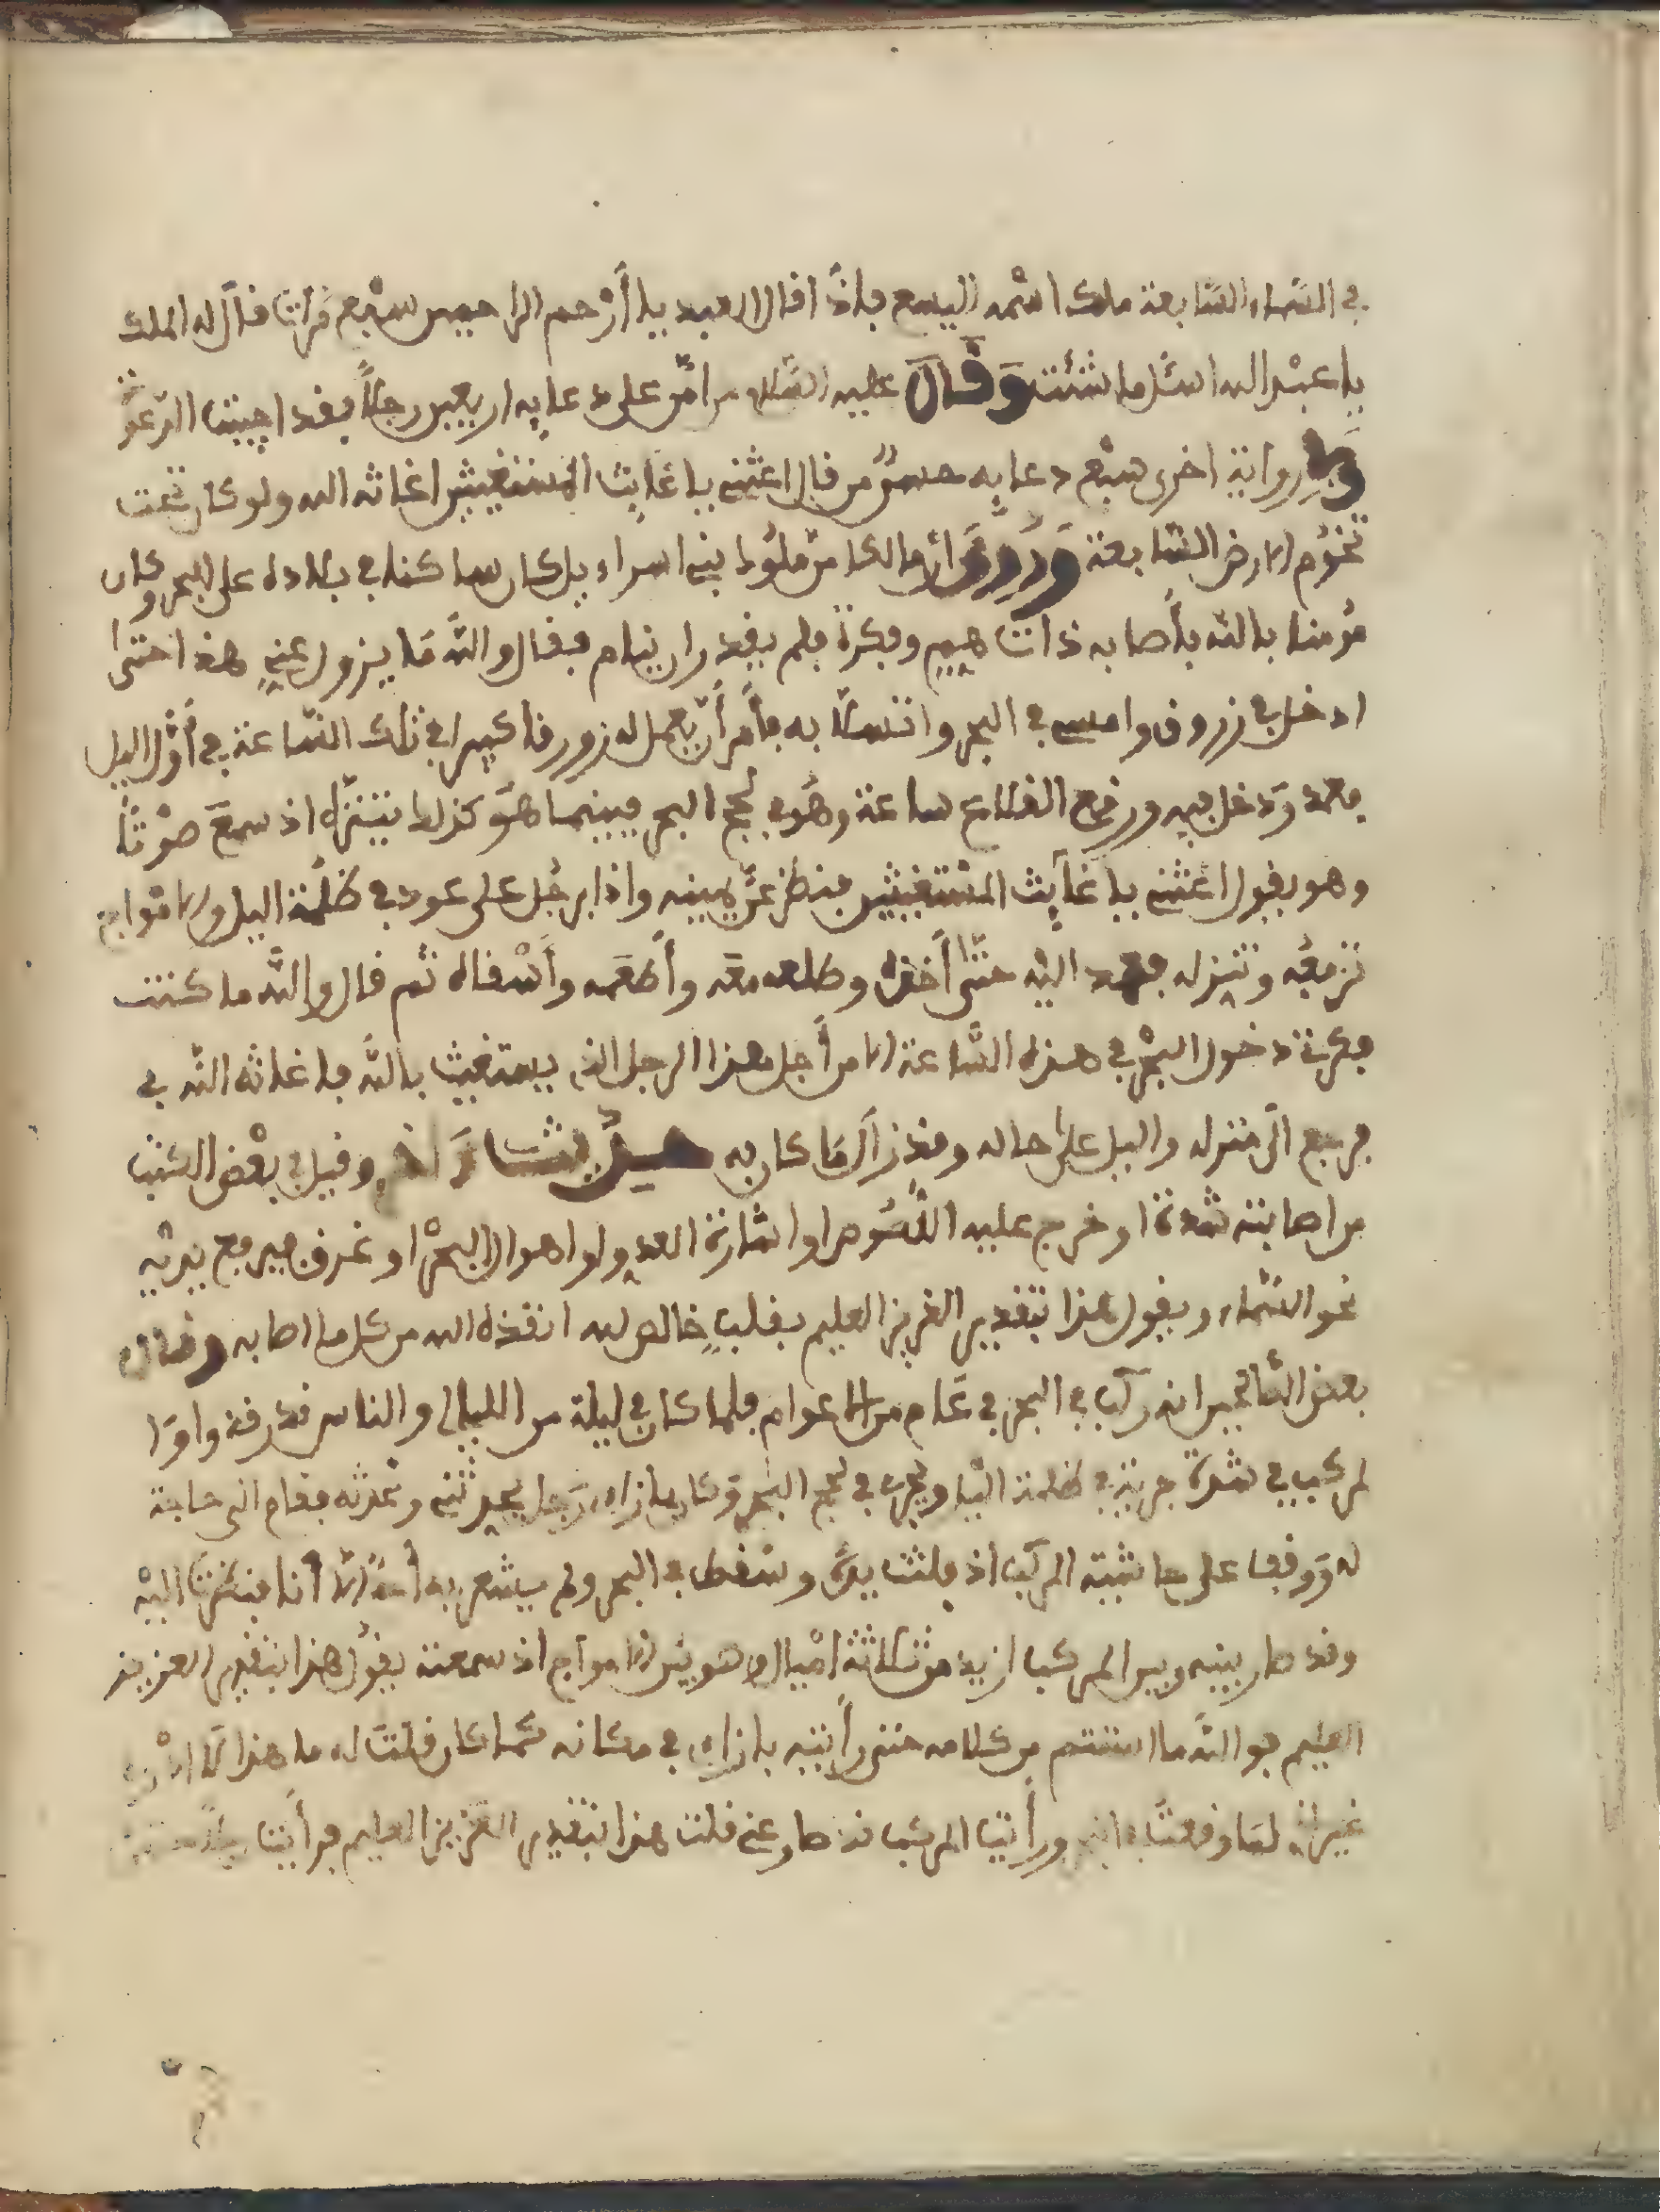 في السماء السابعة ملك اسمه اليسع فإذا قال العبد يا أرحم الراحمين سبع مرات قال له الملك
يا عبد الله اسئل ما شئت وقال عليه السلام من امن على دعايه اربعين رجلا فقد اجيبت الدعوة
وفي رواية اخرى سبع دعايه حسن من قال اغثني يا غايث المستغيثين اغاثه الله ولو كان تحت
تخوم الارض السابعة وروي أن مالكا من ملوك بني اسراءيل كان ساكنا في بلاده على البحر وكان
مؤمنا بالله فأصابه ذات هم وفكرة فلم يقدر ان ينام فقال والله ما يزول عني هذا حتى
ادخل في زروق وامسي في البحر واتسلا به فأمر أن يعمل له زورقا كبيرا في تلك الساعة في أول اليل
فعمد ودخل فيه ورفع القلاع ساعة وهو في لجج البحر فبينما هو كذلك يتنزه اذ سمع صوتا
وهو يقول اغثني يا غايث المستغيثين فنظر عن يمينه واذا برجل على عود في ظلمة اليل والامواج
ترفعه وتنزله فعمد اليه حتى أخذه وطلعه معه وأطعمه وأسقاه ثم قال والله ما كنت
فكرت دخول البحر في هذه الساعة الا من أجل هذا الرجل الذي يستغيث بالله فاغاثه الله بي
فرجع الى منزله واليل على حاله وقد زال ما كان به وقيل في بعض الكتب
من اصابته شدة او خرج عليه اللصوص او اشارة العدو او اهوال البحر او غرق فيرفع يديه
نحو السماء ويقول هذا تقدير العزيز العليم بقلب خالص لله انقذه الله من كل ما اصابه وقال
بعض الصالحين انه ركب في البحر في عام من الاعوام فلما كان في ليلة من الليالي والناس قد رقدوا
لمركب في شدة جريته في ظلمة اليل ويجري في لجج البحر وكان بازاءي رجل يحدثني ونحدثه فقام الى حاجة
له ووقف على حاشية المركب اذ فلتت يده وسقط في البحر ولم يشعر به أحد الا أنا فنظرت اليه
وقد صار بينه وبين المركب ازيد من ثلاثة اميال وهو بين الامواج اذ سمعته يقول هذا تقدير العزيز
العليم فوالله ما استتم من كلامه حتى رأيته بازاءي في مكانه كما كان فقلت له ما هذا
غير اني لما وقعت في البحر ورأيت المركب قد صار عني قلت هذا تقدير العزيز العليم فرأيت